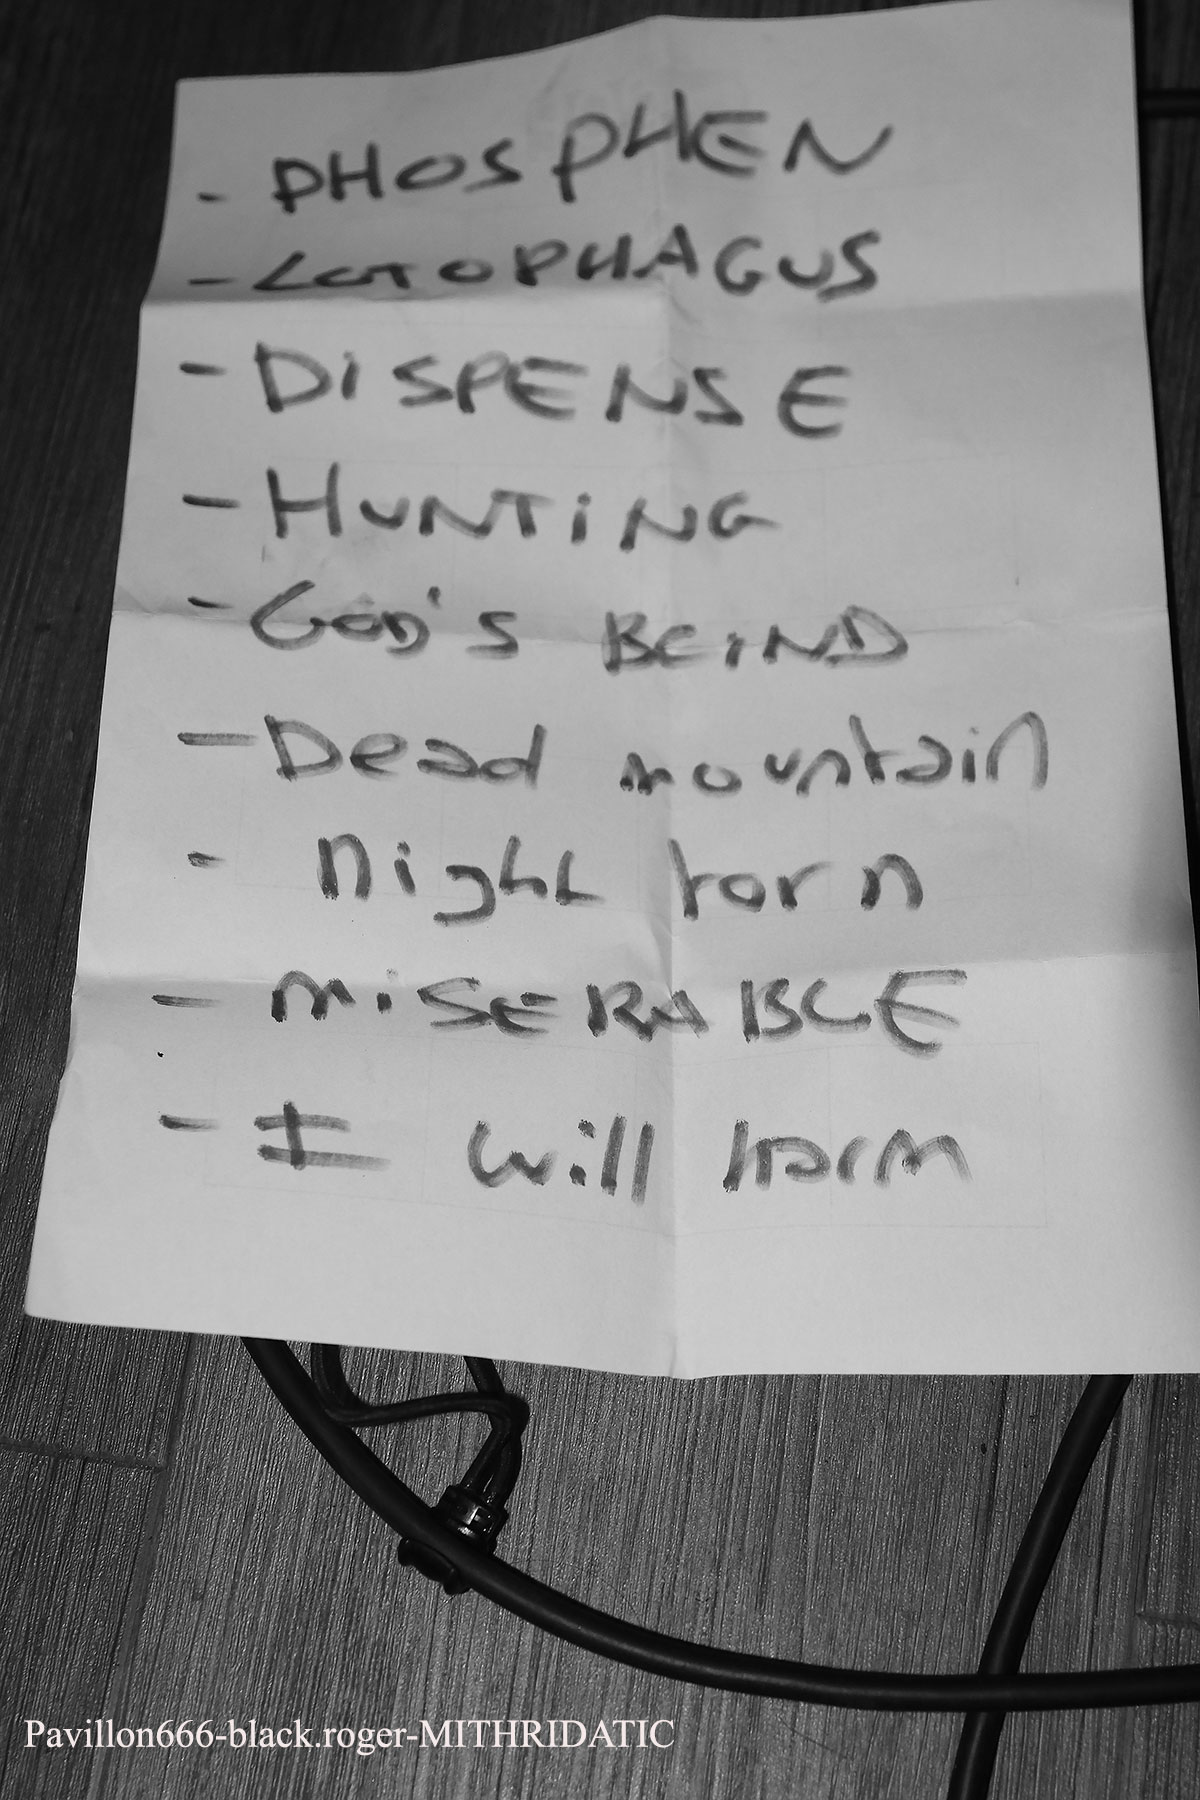 - PHOSPHEN
- LOTOPHAGUS
- DiSPENSE
- HUNTiNG
- GOD'S BEiND
- Dead mountain
- night torn
- MiSERABLE
- I will harm
Pavillon666-black.roger-MITHRIDATIC